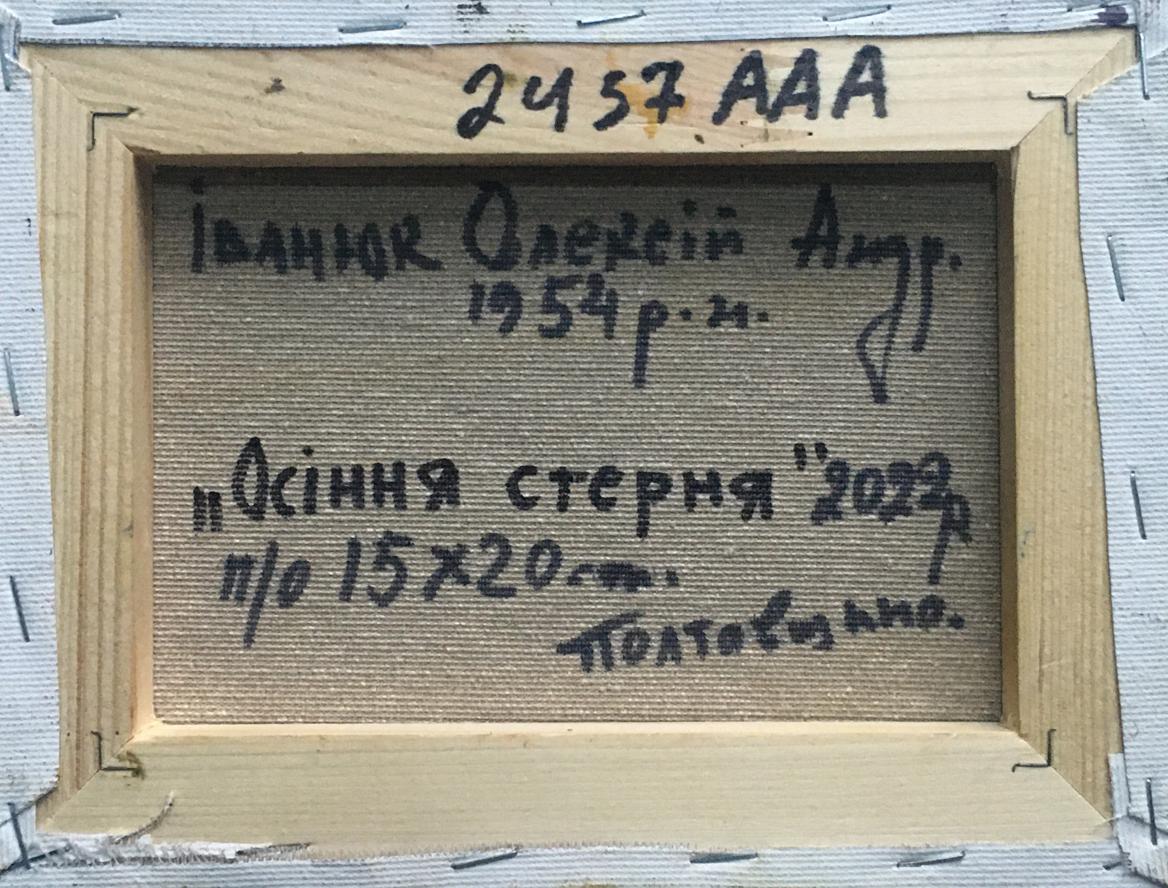 2457 ААА
Іванюк Олексій Андр.
1954 р.н.
„Осіння стерня" 2022р
п/о 15х20см.
Полтавщина.